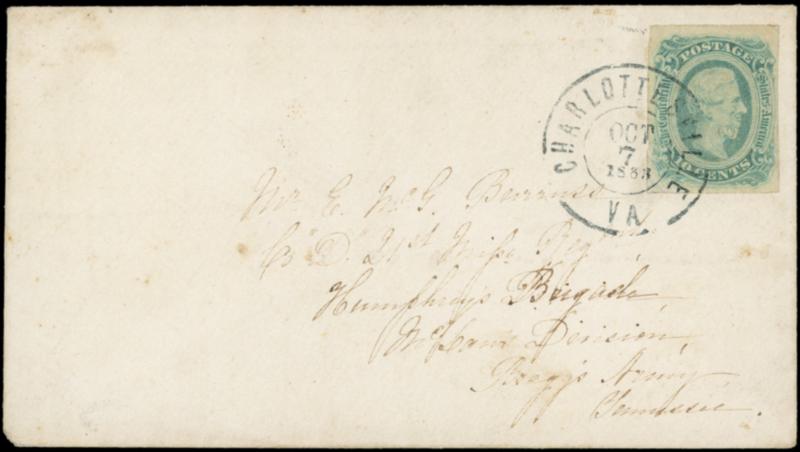 POSTAGE
The Confederate States of America
10 CENTS
CHARLOTTESVILLE
OCT
7
1863
VA
Mr. E. McG. Burruss
Co "D" 21st Miss Reg
Humphrey's Brigade,
McLaws Division,
Bragg's Army
Tennessee.